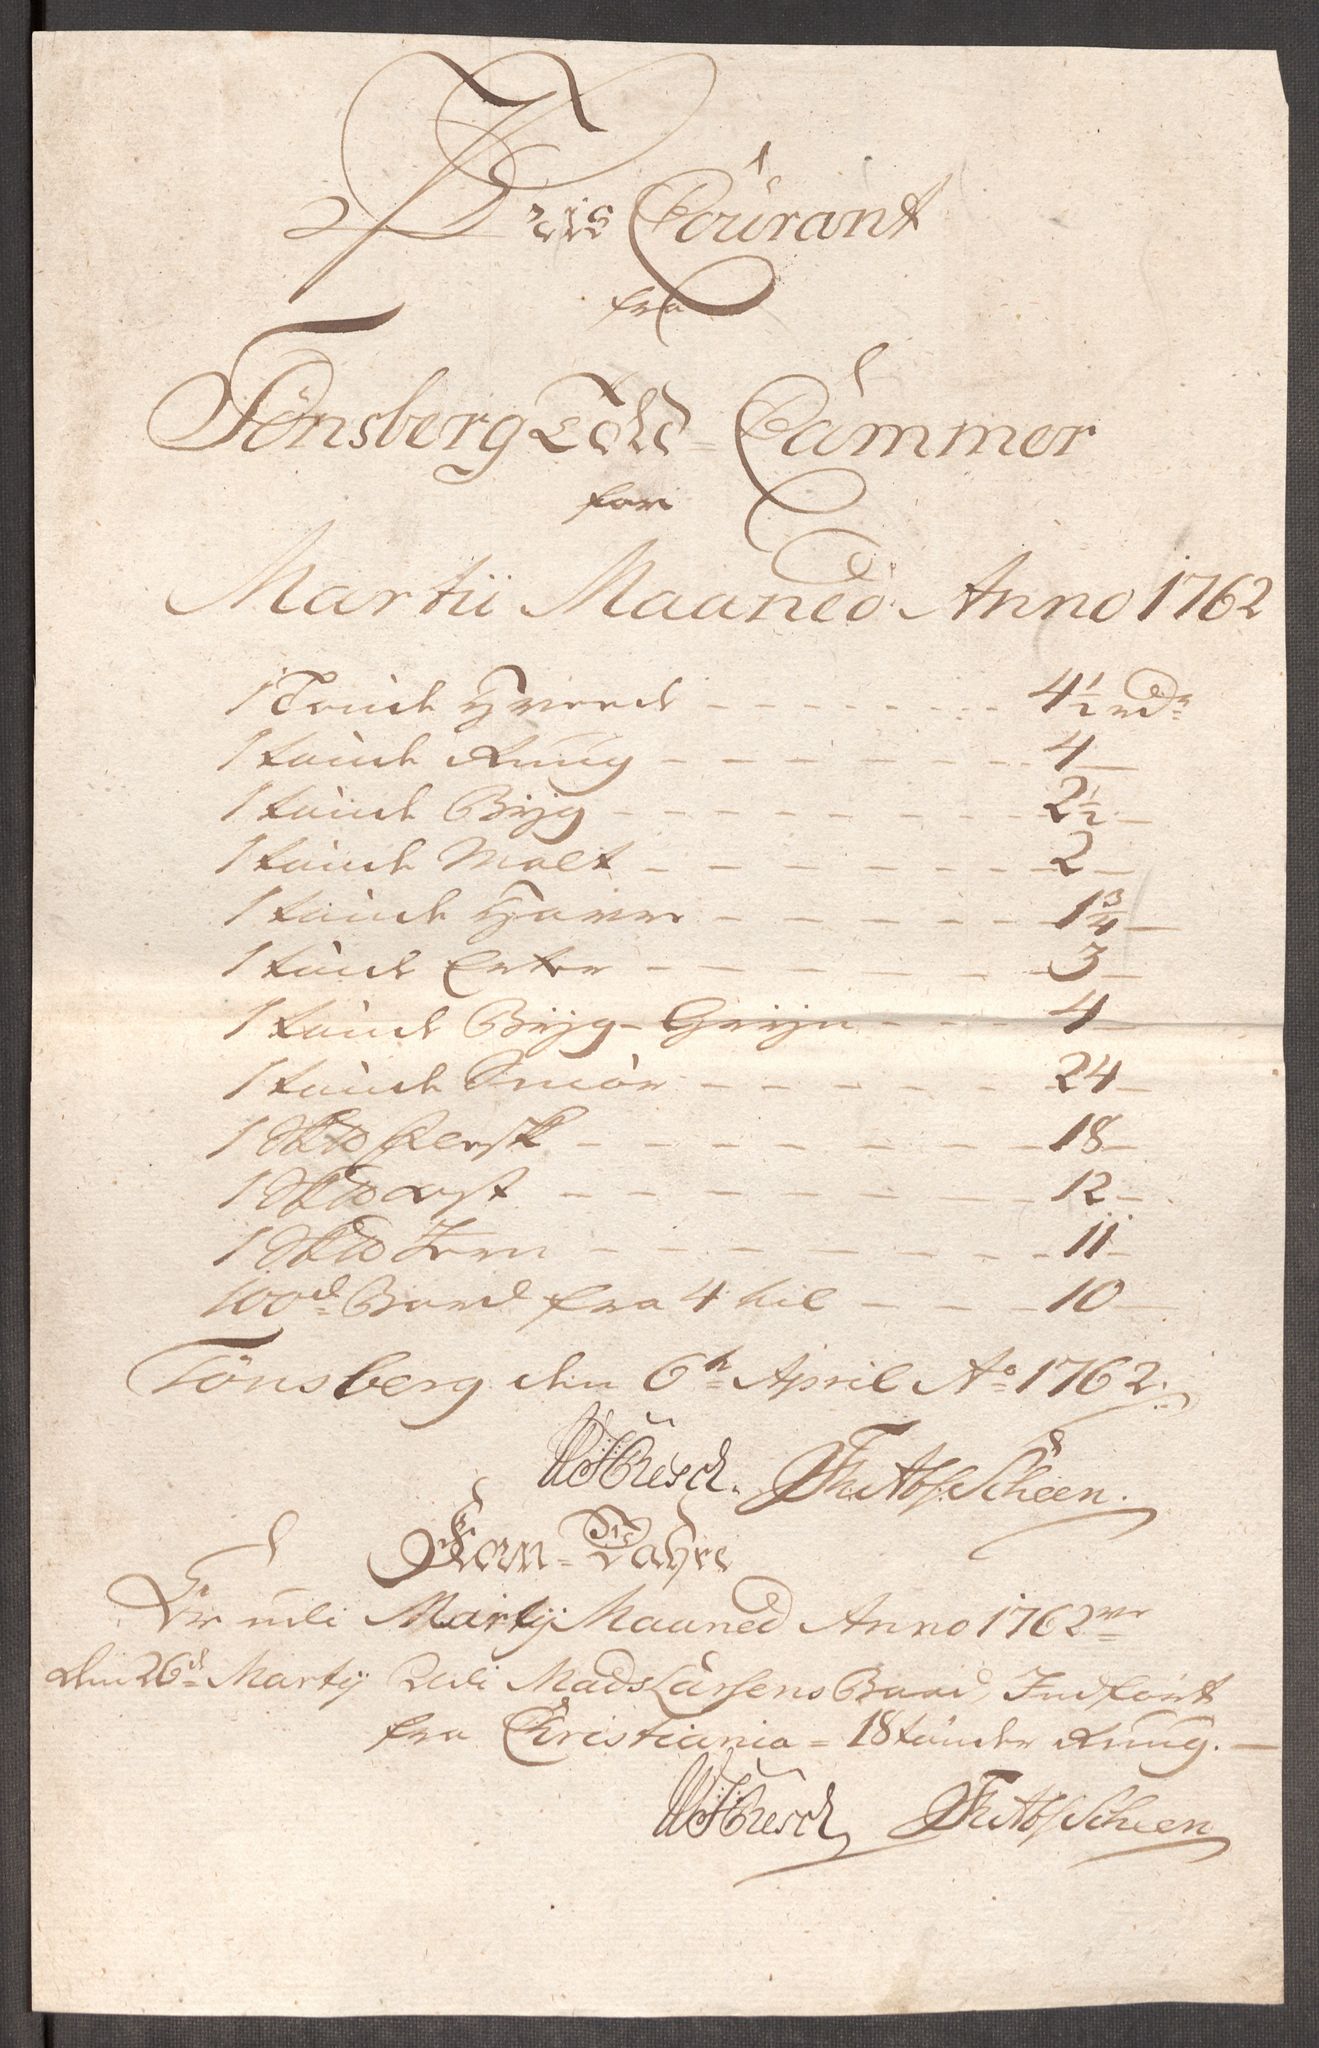 Priis Courant
fra
Tönsberg Told-Cammer
for
Martii Maaned Anno 1762
1 Tönde Hvede - - - 4½ rdr
1 tönde Rüug - - - 4
1 tönde Byg - - - 2½
1 tönde Malt - - - 2
1 tönde Havre - - - 1¾
1 tönde Erter - - - 3
1 tönde Byg-Gryn - - - 4
1 tönde Smör - - - 24
1 Sk℔ Flesk - - - 18
1 Sk℔ Ost - - - 12
1 Sk℔ Jern - - - 11
100d Bord fra 4 hil - - - 10
Tönsberg den 6te April Ao 1762
Resch. Scheen.
Korn-Vahre
Er udi Martij Maaned Anno 1762
den 26d Martij Udi Mads Larsens Baad, Indfört
fra Christiania = 18 tönder Rüug.
Resch Scheen